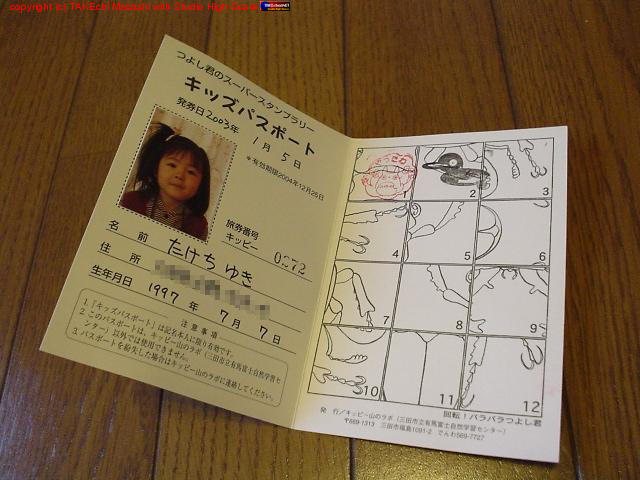 つよし君のスーパースタンプラリー
キッズパスポート
発券日2003年
1月5日
*有効期限2004年12月25日
旅券番号
キッピー 0272
名前 たけち ゆき
住所
生年月日 1997年 7月 7日
注意事項
1.「キッズパスポート」は記名本人に限り有効です。
2.このパスポートは、キッピー山のラボ(三田市立有馬富士自然学習セ
ンター)以外では使用できません。
3.パスポートを紛失した場合はキッピー山のラボに連絡してください。
1
2
3
4
5
6
7
8
9
10
11
12
回転!バラバラつよし君
発 行/キッピー山のラボ(三田市立有馬富士自然学習センター)
〒669-1313 三田市福島1091-2 でんわ569-7727